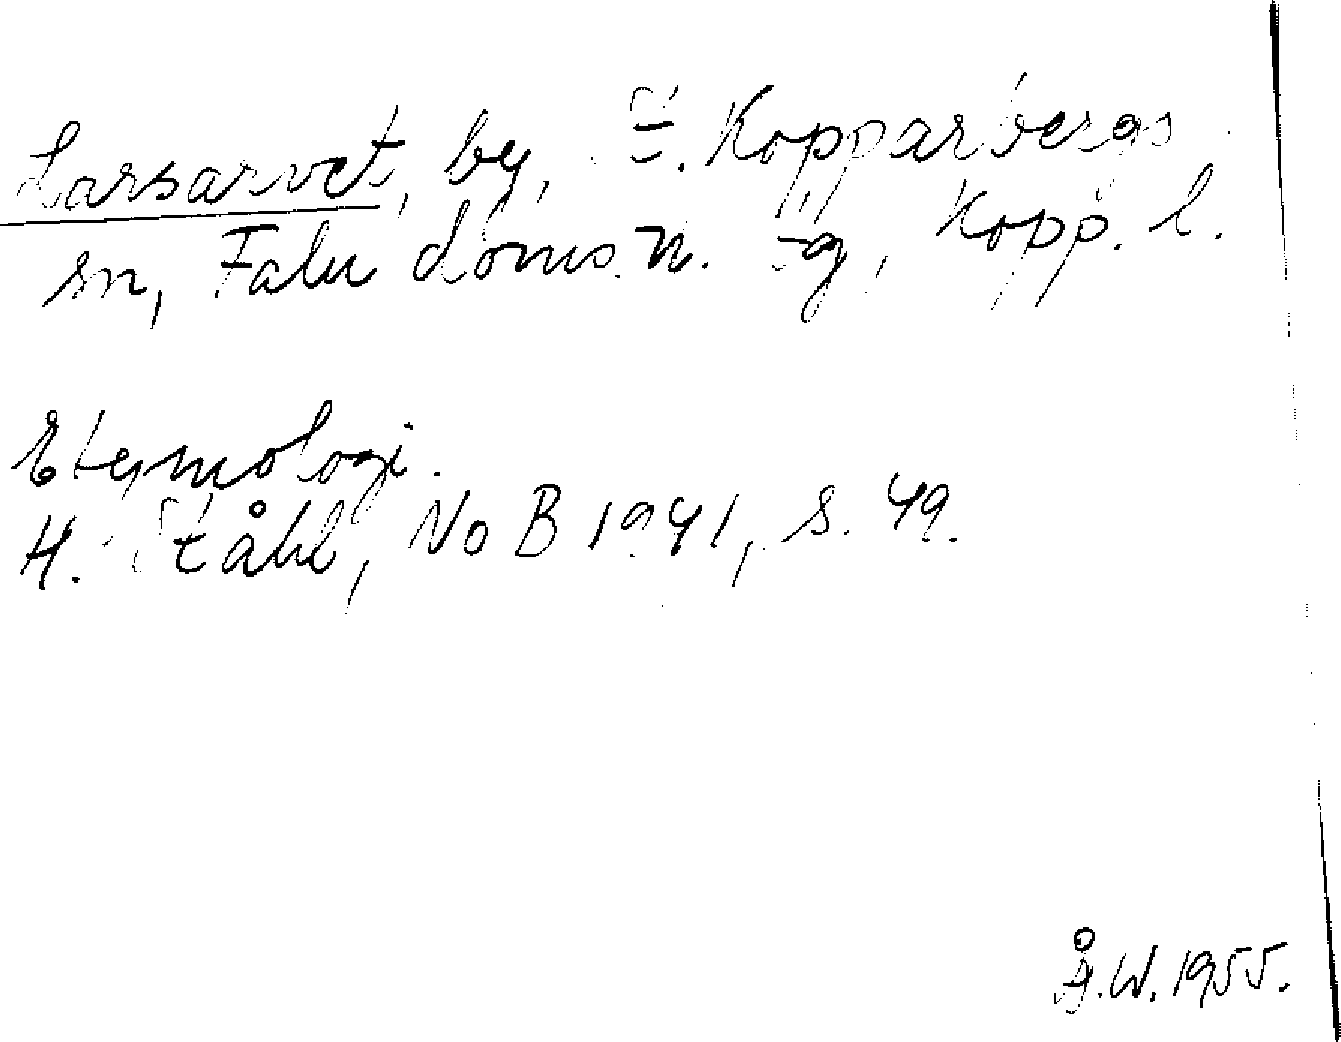 Larsarvet, by, St. Kopparbergs
sn, Falu doms. n. tg, Kopp. l.
Etymologi.
H. Ståhl, NoB 1941, s. 49.
Å.W. 1955.